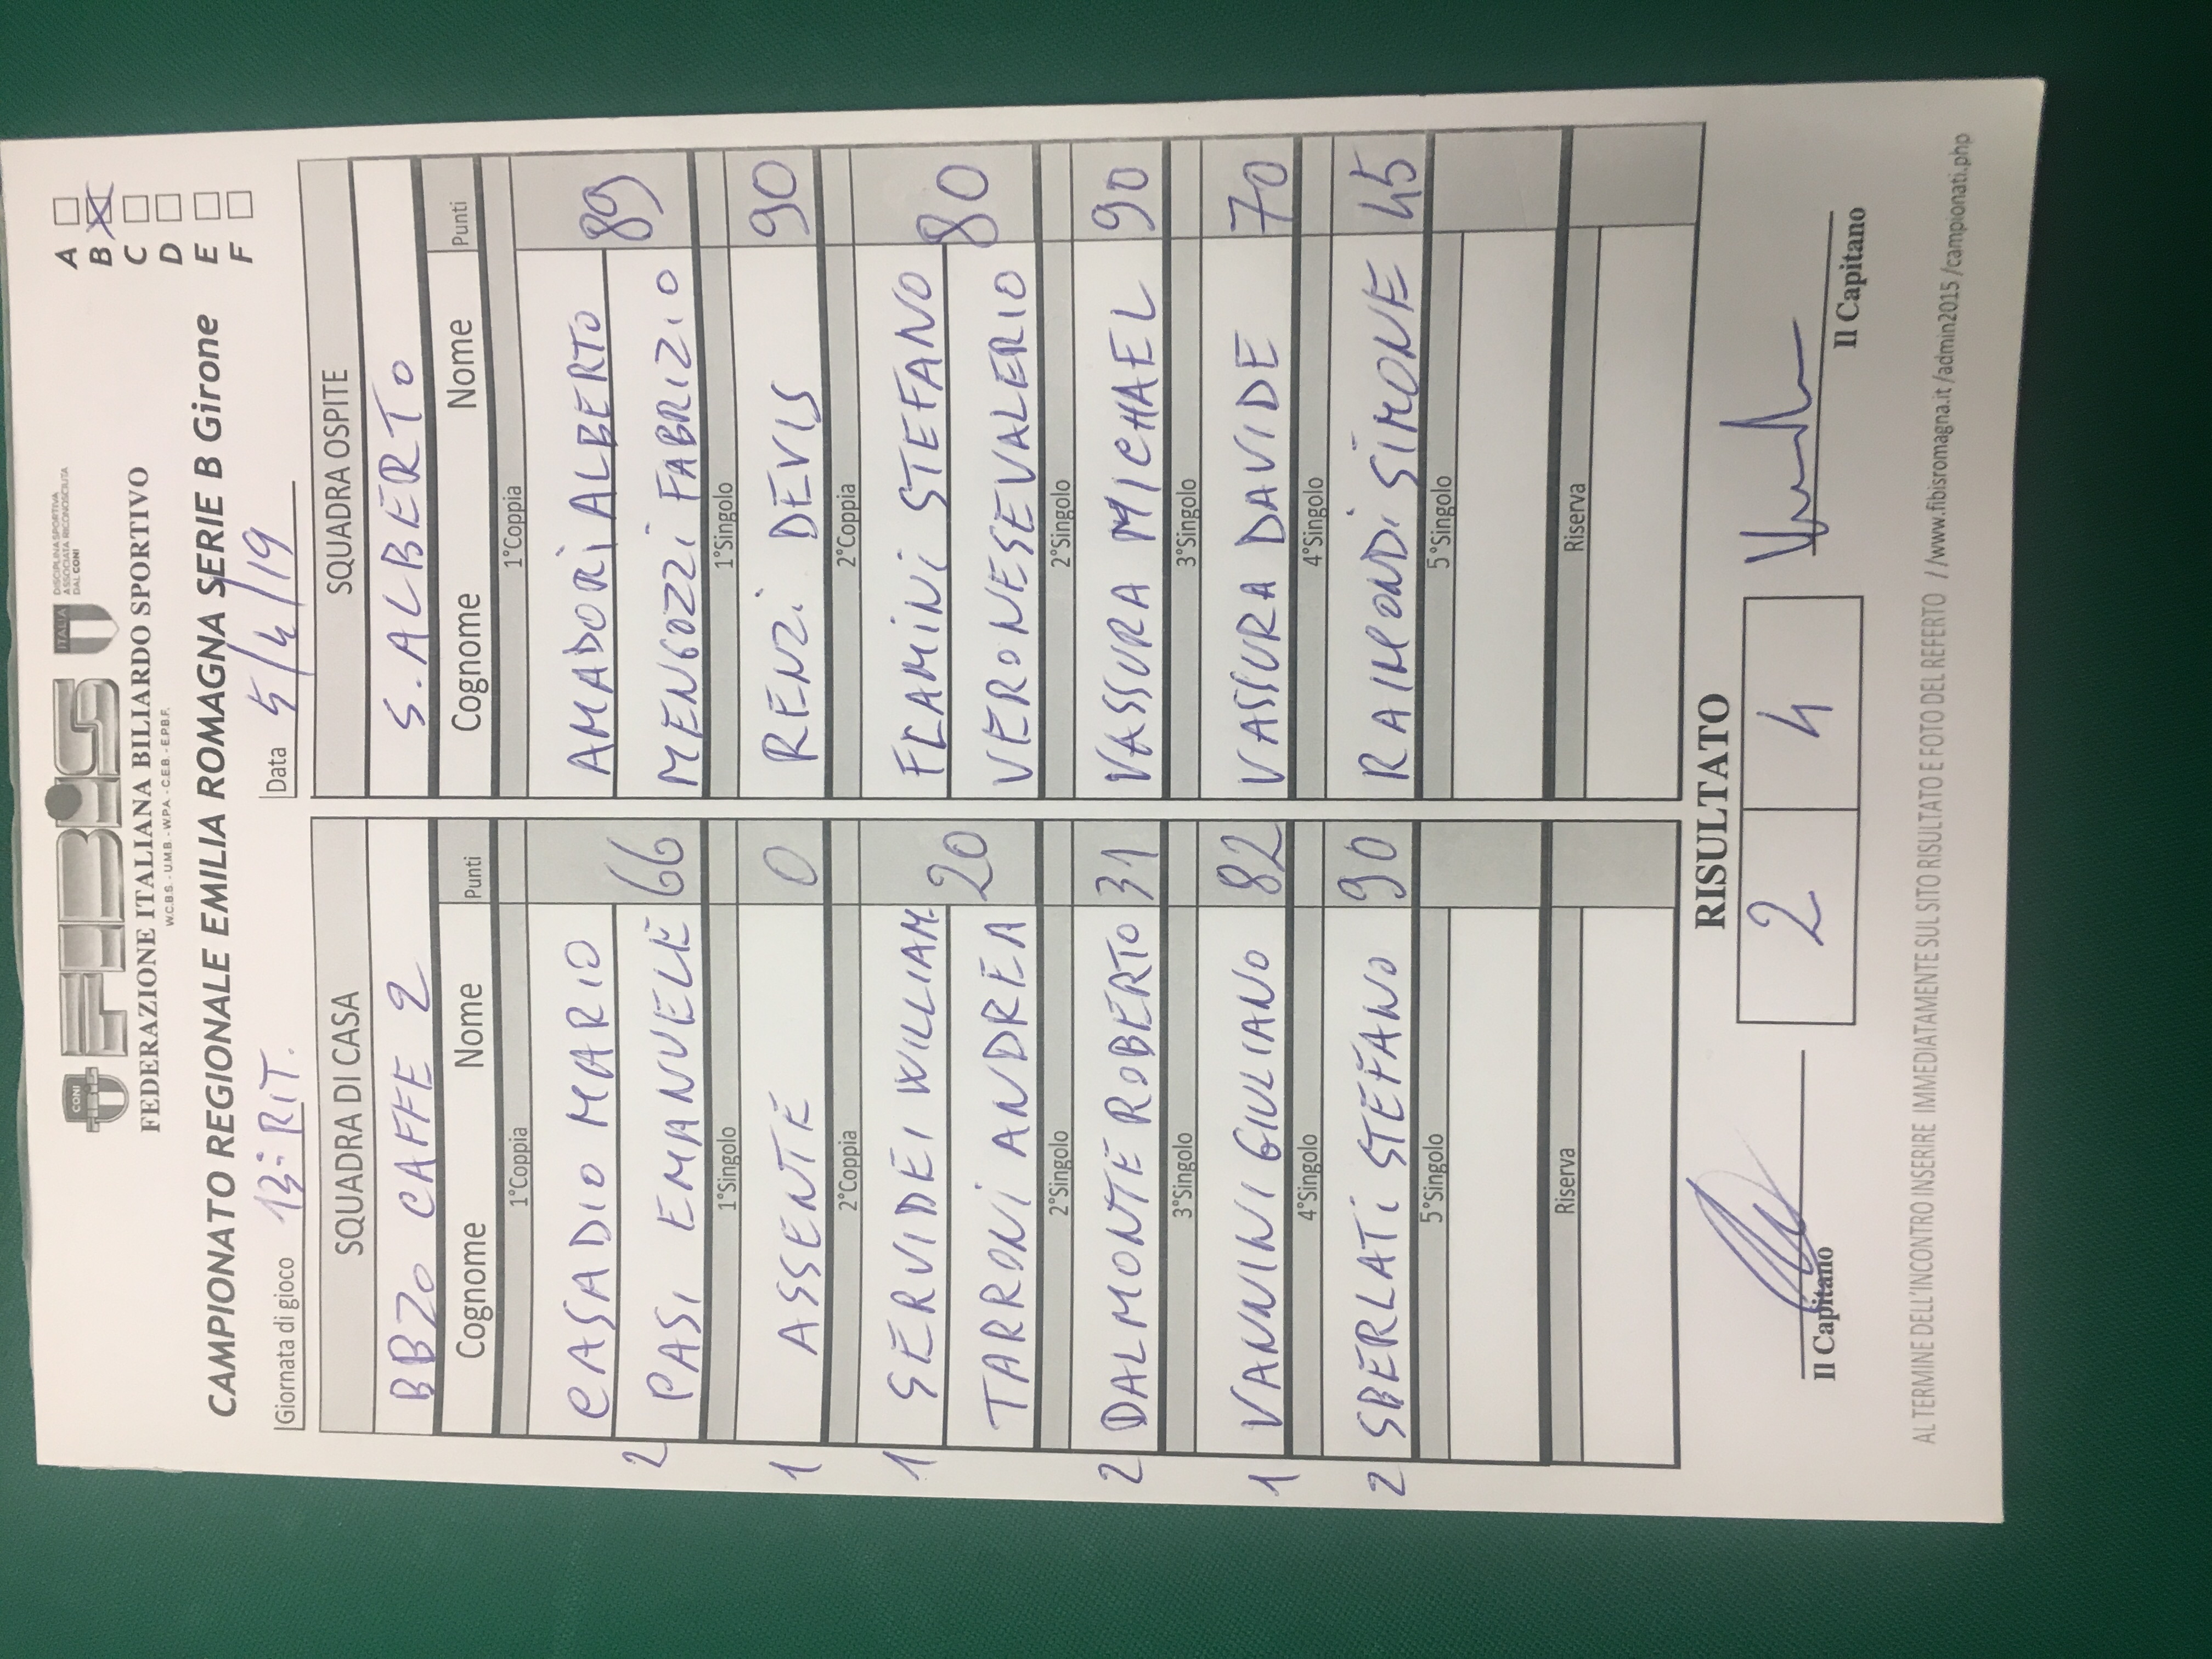 CONI
FIBiS
ITALIA
DISCIPLINA SPORTIVA
ASSOCIATA RICONOSCIUTA
DAL CONI
FEDERAZIONE ITALIANA BILIARDO SPORTIVO
W.C.B.S. - U.M.B. - W.P.A. - C.E.B. - E.P.B.F.
CAMPIONATO REGIONALE EMILIA ROMAGNA SERIE B Girone
A
B
C
D
E
F
Giornata di gioco 13° RIT. Data 5/4/19
SQUADRA DI CASA SQUADRA OSPITE
BBZO CAFFE 2 S. ALBERTO
Cognome Nome Punti Cognome Nome Punti
1°Coppia 1°Coppia
CASADIO MARIO AMADORI ALBERTO
2 PASI EMANUELE 66 MENGOZZI FABRIZIO 89
1°Singolo 1°Singolo
1 ASSENTE 0 RENZI DEVIS 90
2°Coppia 2°Coppia
1 SERVIDEI WILLIAM FLAMINI STEFANO
TARRONI ANDREA 20 VERONESE VALERIO 80
2°Singolo 2°Singolo
2 DALMONTE ROBERTO 31 VASSURA MICHAEL 90
3°Singolo 3°Singolo
1 VANNINI GIULIANO 82 VASSURA DAVIDE 70
4°Singolo 4°Singolo
2 SBERLATI STEFANO 90 RAIMONDI SIMONE 45
5°Singolo 5°Singolo
Riserva Riserva
RISULTATO
2 4
Il Capitano Il Capitano
AL TERMINE DELL'INCONTRO INSERIRE IMMEDIATAMENTE SUL SITO RISULTATO E FOTO DEL REFERTO //www.fibisromagna.it /admin2015 /campionati.php